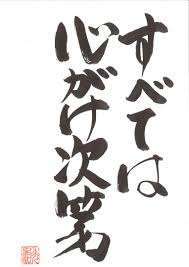 すべては
心がけ次第